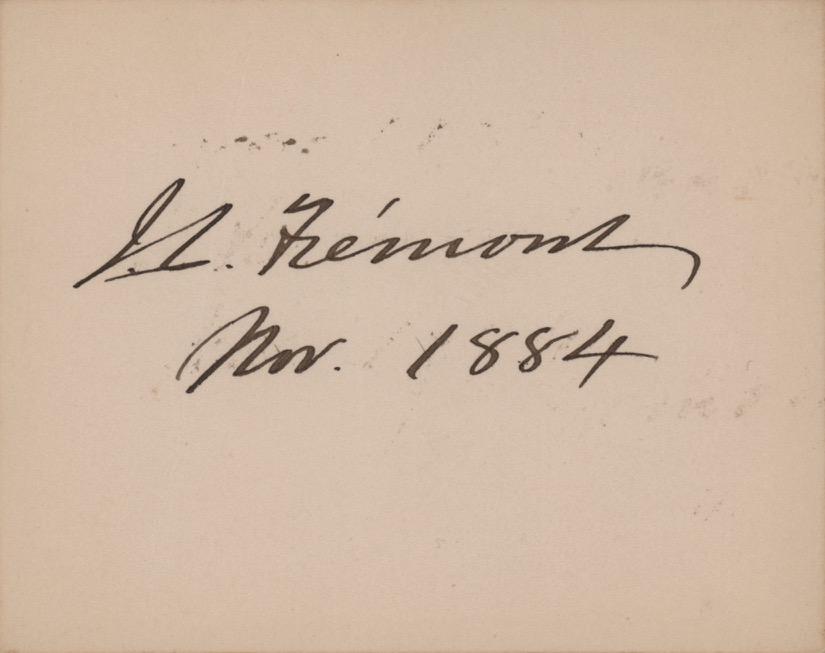 J. C. Frémont
Nov. 1884